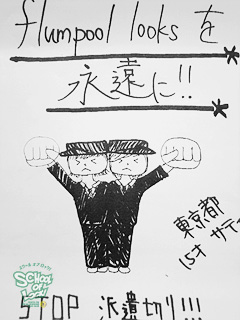 flumpool looks を
永遠に!!
東京都
15才 サティ
SCHOOL OF LOCK!
STOP 派遣切り!!!